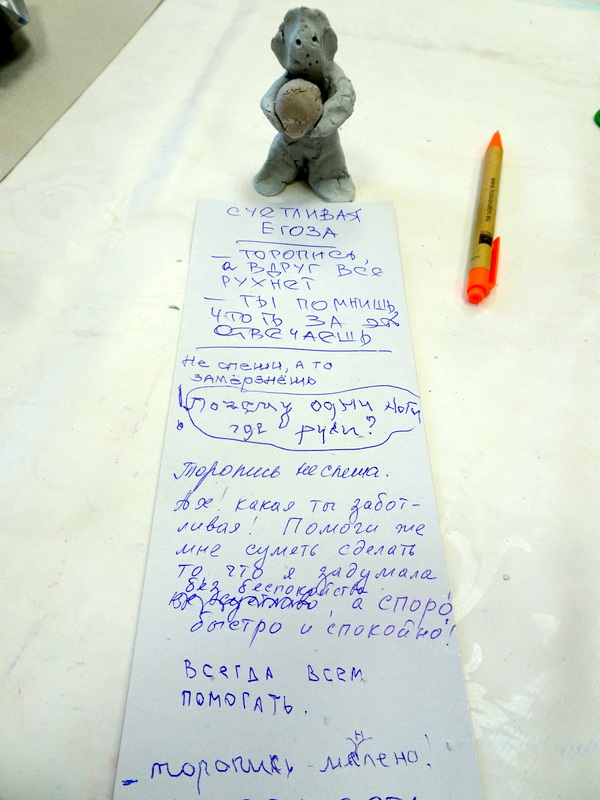 СЧЕТЛИВАЯ
ЕГОЗА
— ТОРОПИСЬ,
а ВДРУГ ВСЕ
РУХНЕТ
— ТЫ ПОМНИШЬ,
ЧТО ТЬ ЗА
ОТВЕЧАЕШЬ
Не спеши, а то
замёрзнешь
Почему одни ноги
где руки?
Торопись неспеша.
Ах! какая ты забот-
ливая! Помоги же
мне суметь сделать
то что я задумала
без беспокойства
, а споро
быстро и спокойно!
ВСЕГДА ВСЕМ
ПОМОГАТЬ.
— торопись медлено!